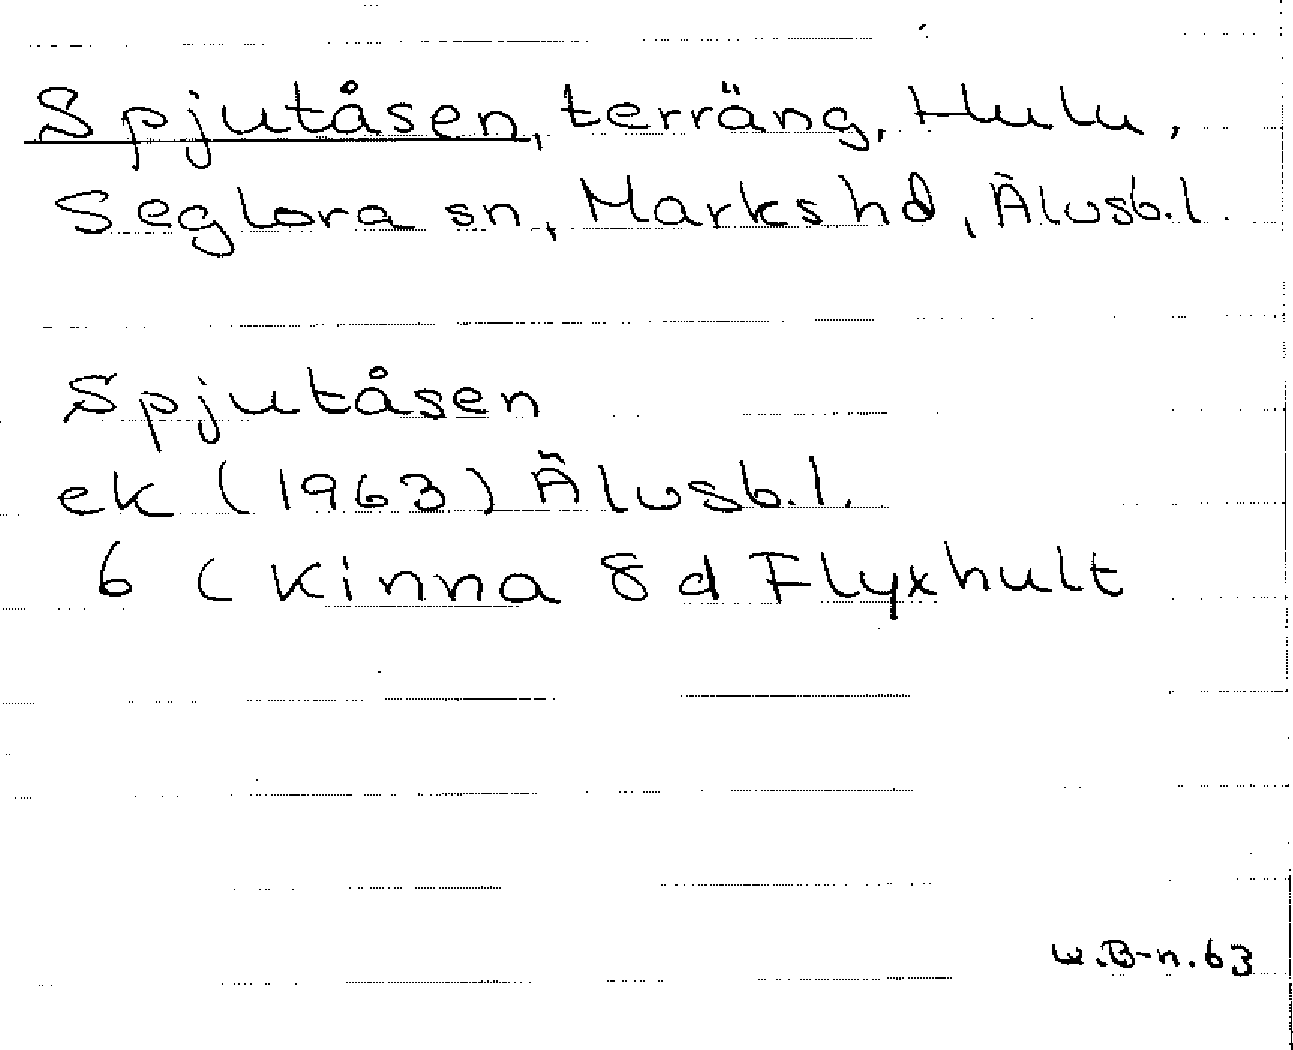 Spjutåsen, terräng, Hulu,
Seglora sn, Marks hd, Älvsb.l.
Spjutåsen
ek (1963) Älvsb.l.
6 ( Kinna 8 d Flyxhult
w.B-n.63